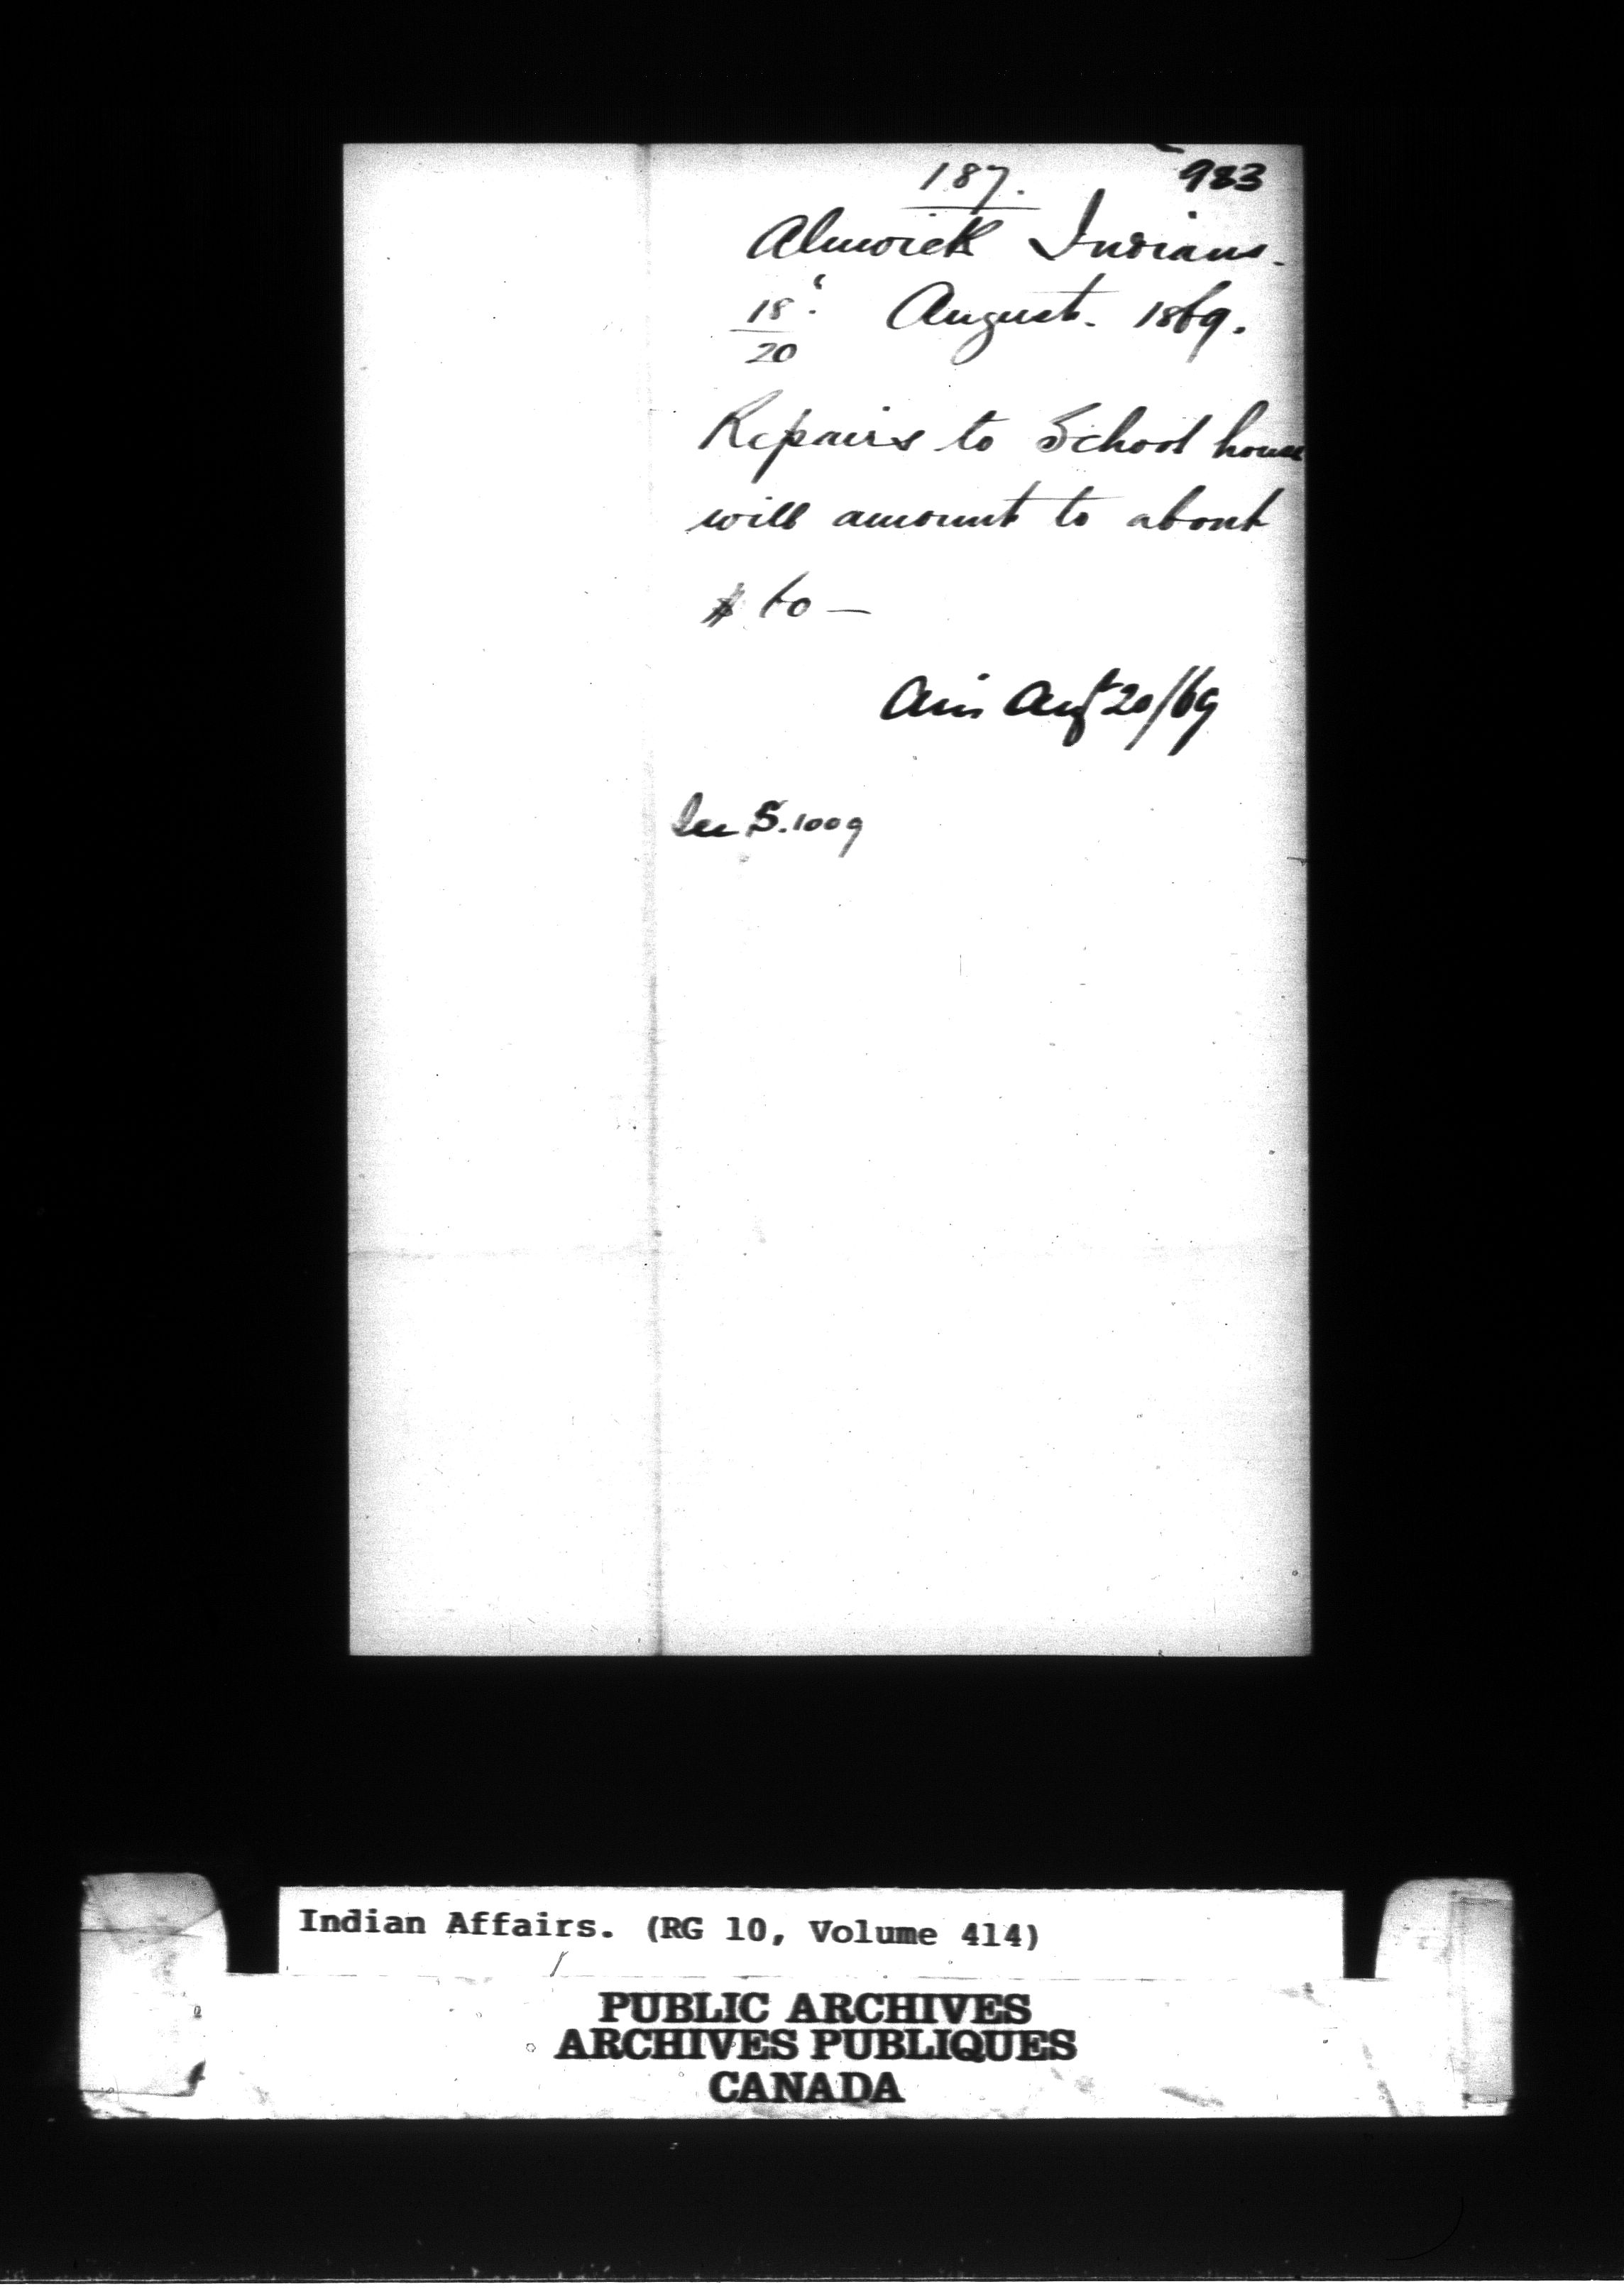 187. 983
Alnwick Indians.
18 August. 1869.
20
Repairs to School house
will amount to about
$ 60 —
Augt 20/69
See S. 1009
Indian Affairs. (RG 10, Volume 414)
PUBLIC ARCHIVES
ARCHIVES PUBLIQUES
CANADA